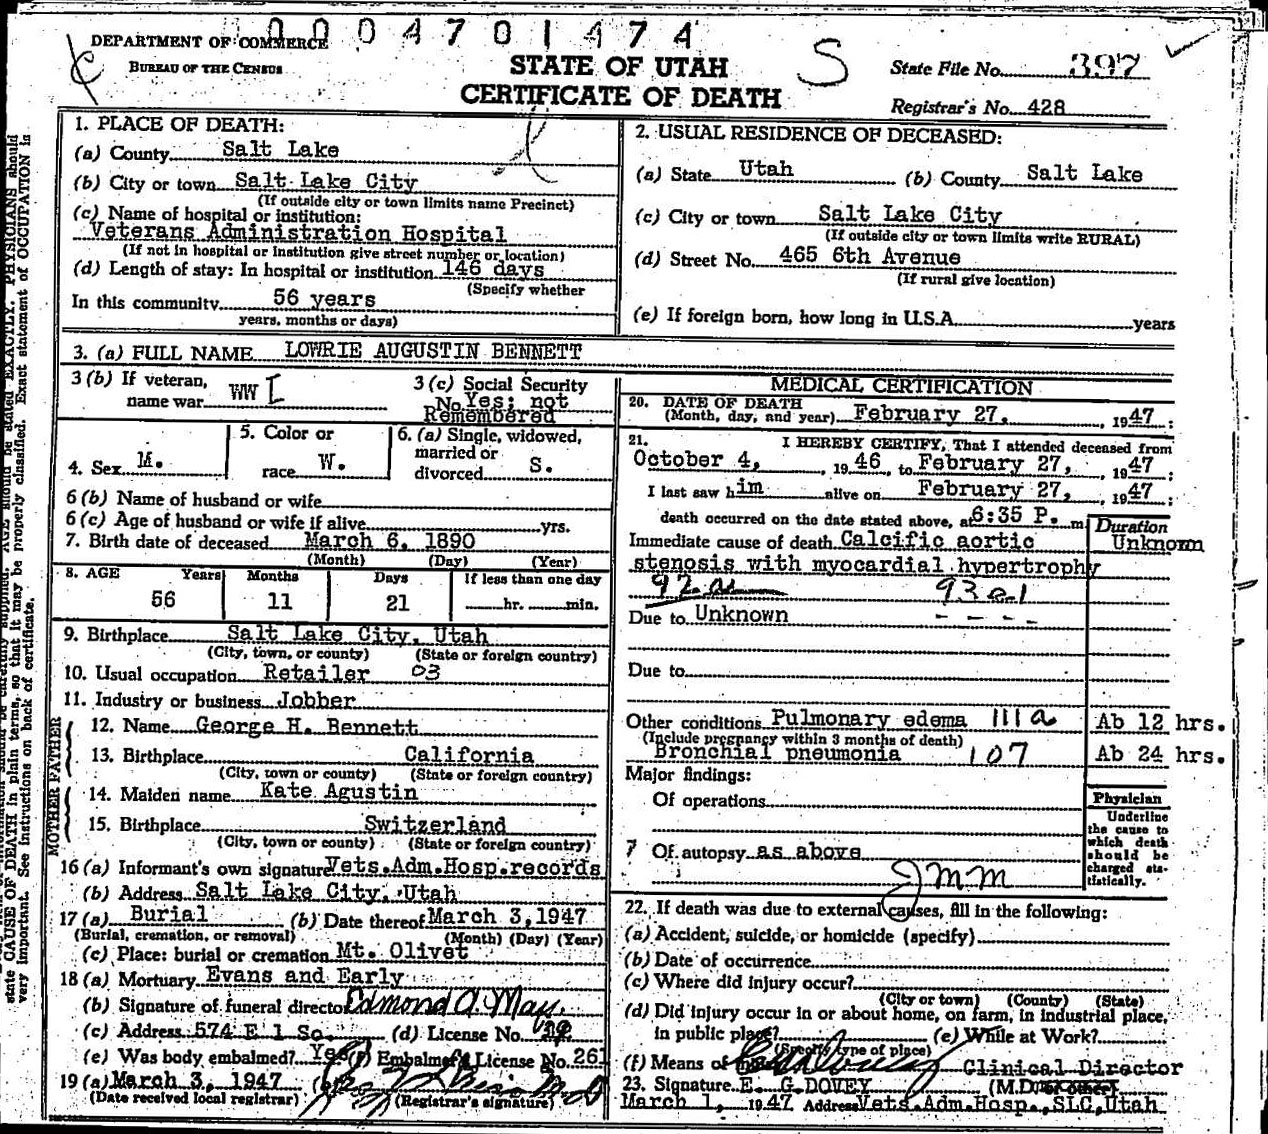 0004701474
DEPARTMENT OF COMMERCE
BUREAU OF THE CENSUS
STATE OF UTAH
CERTIFICATE OF DEATH
S
State File No. 397
Registrar's No. 428
1. PLACE OF DEATH:
(a) County Salt Lake
(b) City or town Salt Lake City
(If outside city or town limits name Precinct)
(c) Name of hospital or institution:
Veterans Administration Hospital
(If not in hospital or institution give street number or location)
(d) Length of stay: In hospital or institution 146 days
(Specify whether
In this community 56 years
years, months or days)
2. USUAL RESIDENCE OF DECEASED:
(a) State Utah (b) County Salt Lake
(c) City or town Salt Lake City
(If outside city or town limits write RURAL)
(d) Street No. 465 6th Avenue
(If rural give location)
(e) If foreign born, how long in U.S.A. years
3. (a) FULL NAME LOWRIE AUGUSTIN BENNETT
3 (b) If veteran, name war WW I
3 (c) Social Security
No. Yes; not
Remembered
4. Sex M.
5. Color or race W.
6. (a) Single, widowed, married or divorced S.
6 (b) Name of husband or wife
6 (c) Age of husband or wife if alive yrs.
7. Birth date of deceased March 6, 1890
(Month) (Day) (Year)
8. AGE Years Months Days If less than one day
56 11 21 hr. min.
9. Birthplace Salt Lake City, Utah
(City, town, or county) (State or foreign country)
10. Usual occupation Retailer 03
11. Industry or business Jobber
FATHER
12. Name George H. Bennett
13. Birthplace California
(City, town or county) (State or foreign country)
MOTHER
14. Maiden name Kate Agustin
15. Birthplace Switzerland
(City, town or county) (State or foreign country)
16 (a) Informant's own signature Vets.Adm.Hosp.records
(b) Address Salt Lake City, Utah
17 (a) Burial (b) Date thereof March 3, 1947
(Burial, cremation, or removal) (Month) (Day) (Year)
(c) Place: burial or cremation Mt. Olivet
18 (a) Mortuary Evans and Early
(b) Signature of funeral director Edmond A. May.
(c) Address 574 E 1 So. (d) License No.
(e) Was body embalmed? Yes (f) Embalmer's License No. 261
19 (a) March 3, 1947 (b)
(Date received local registrar) (Registrar's signature)
MEDICAL CERTIFICATION
20. DATE OF DEATH
(Month, day, and year) February 27, 1947
21. I HEREBY CERTIFY, That I attended deceased from
October 4, 1946 to February 27, 1947
I last saw him alive on February 27, 1947
death occurred on the date stated above, at 6:35 P. m
Duration
Immediate cause of death Calcific aortic Unknown
stenosis with myocardial hypertrophy
92 a 93 e-1
Due to Unknown
Due to
Other conditions Pulmonary edema 111a Ab 12 hrs.
(Include pregnancy within 3 months of death)
Bronchial pneumonia 107 Ab 24 hrs.
Major findings:
Of operations
7 Of autopsy as above
JMM
Physician
Underline
the cause to
which death
should be
charged sta-
tistically.
22. If death was due to external causes, fill in the following:
(a) Accident, suicide, or homicide (specify)
(b) Date of occurrence
(c) Where did injury occur?
(City or town) (County) (State)
(d) Did injury occur in or about home, on farm, in industrial place,
in public place? (e) While at Work?
(Specify type of place)
(f) Means of Clinical Director
23. Signature E. G. DOVEY (M.D.
March 1, 1947 Address Vets.Adm.Hosp.,SLC,Utah
state CAUSE OF DEATH in plain terms, so that it may be properly classified. Exact statement of OCCUPATION is
very important. See instructions on back of certificate.